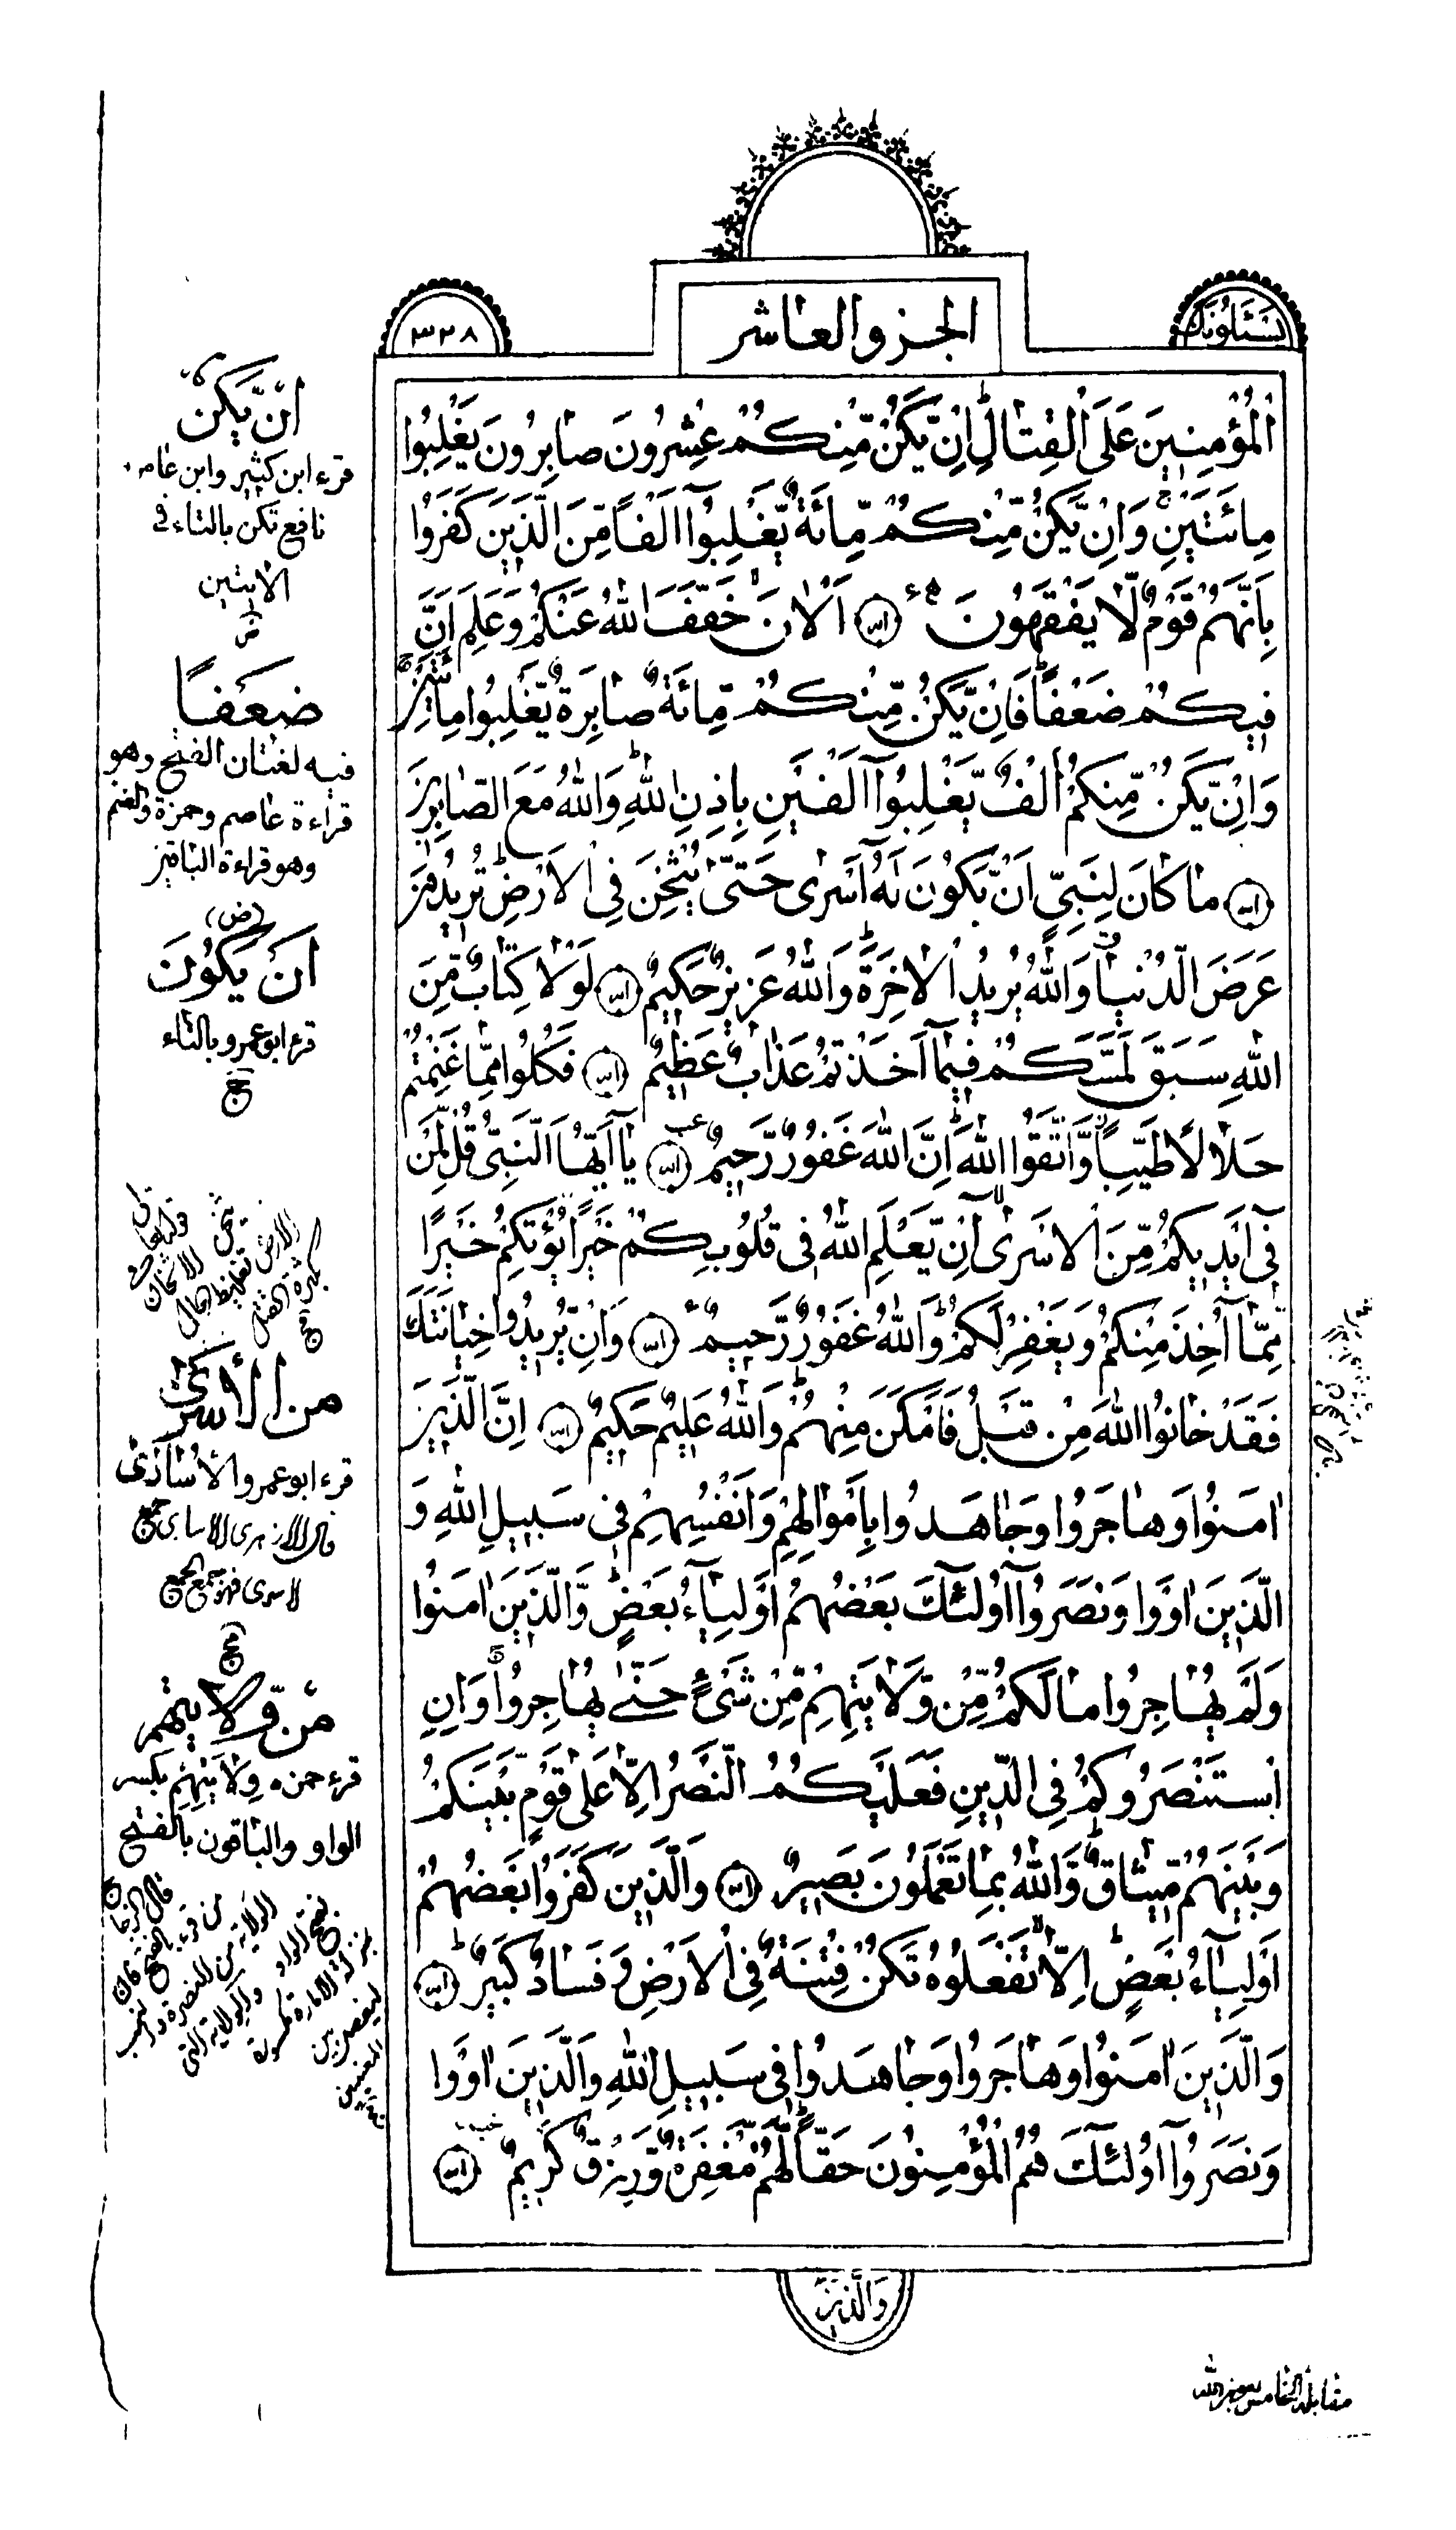 يسئلونك
الجزو العاشر
٣٢٨
الْمُؤْمِنِينَ عَلَى الْقِتَالِ اِنْ يَكُنْ مِنْكُمْ عِشْرُونَ صَابِرُونَ يَغْلِبُوا
مِائَتَيْنِ وَاِنْ يَكُنْ مِنْكُمْ مِائَةٌ يَغْلِبُوآ اَلْفًا مِنَ الَّذِينَ كَفَرُوا
بِاَنَّهُمْ قَوْمٌ لَا يَفْقَهُونَ اَلْاٰنَ خَفَّفَ اللّٰهُ عَنْكُمْ وَعَلِمَ اَنَّ
فِيكُمْ ضَعْفًا فَاِنْ يَكُنْ مِنْكُمْ مِائَةٌ صَابِرَةٌ يَغْلِبُوا مِائَتَيْنِ
وَاِنْ يَكُنْ مِنْكُمْ اَلْفٌ يَغْلِبُوآ اَلْفَيْنِ بِاِذْنِ اللّٰهِ وَاللّٰهُ مَعَ الصَّابِرِينَ
مَا كَانَ لِنَبِيٍّ اَنْ يَكُونَ لَهُ اَسْرٰى حَتّٰى يُثْخِنَ فِي الْاَرْضِ تُرِيدُونَ
عَرَضَ الدُّنْيَا وَاللّٰهُ يُرِيدُ الْاٰخِرَةَ وَاللّٰهُ عَزِيزٌ حَكِيمٌ لَوْلَا كِتَابٌ مِنَ
اللّٰهِ سَبَقَ لَمَسَّكُمْ فِيمَآ اَخَذْتُمْ عَذَابٌ عَظِيمٌ فَكُلُوا مِمَّا غَنِمْتُمْ
حَلَالًا طَيِّبًا وَاتَّقُوا اللّٰهَ اِنَّ اللّٰهَ غَفُورٌ رَحِيمٌ يَآ اَيُّهَا النَّبِيُّ قُلْ لِمَنْ
فِي اَيْدِيكُمْ مِنَ الْاَسْرٰى اِنْ يَعْلَمِ اللّٰهُ فِي قُلُوبِكُمْ خَيْرًا يُؤْتِكُمْ خَيْرًا
مِمَّآ اُخِذَ مِنْكُمْ وَيَغْفِرْ لَكُمْ وَاللّٰهُ غَفُورٌ رَحِيمٌ وَاِنْ يُرِيدُوا خِيَانَتَكَ
فَقَدْ خَانُوا اللّٰهَ مِنْ قَبْلُ فَاَمْكَنَ مِنْهُمْ وَاللّٰهُ عَلِيمٌ حَكِيمٌ اِنَّ الَّذِينَ
اٰمَنُوا وَهَاجَرُوا وَجَاهَدُوا بِاَمْوَالِهِمْ وَاَنْفُسِهِمْ فِي سَبِيلِ اللّٰهِ وَ
الَّذِينَ اٰوَوْا وَنَصَرُوآ اُولٰئِكَ بَعْضُهُمْ اَوْلِيَآءُ بَعْضٍ وَالَّذِينَ اٰمَنُوا
وَلَمْ يُهَاجِرُوا مَا لَكُمْ مِنْ وَلَايَتِهِمْ مِنْ شَيْءٍ حَتّٰى يُهَاجِرُوا وَاِنِ
اسْتَنْصَرُوكُمْ فِي الدِّينِ فَعَلَيْكُمُ النَّصْرُ اِلَّا عَلٰى قَوْمٍ بَيْنَكُمْ
وَبَيْنَهُمْ مِيثَاقٌ وَاللّٰهُ بِمَا تَعْمَلُونَ بَصِيرٌ وَالَّذِينَ كَفَرُوا بَعْضُهُمْ
اَوْلِيَآءُ بَعْضٍ اِلَّا تَفْعَلُوهُ تَكُنْ فِتْنَةٌ فِي الْاَرْضِ وَفَسَادٌ كَبِيرٌ
وَالَّذِينَ اٰمَنُوا وَهَاجَرُوا وَجَاهَدُوا فِي سَبِيلِ اللّٰهِ وَالَّذِينَ اٰوَوْا
وَنَصَرُوآ اُولٰئِكَ هُمُ الْمُؤْمِنُونَ حَقًّا لَهُمْ مَغْفِرَةٌ وَرِزْقٌ كَرِيمٌ
وَالَّذِينَ
ان يكن
قرء ابن كثير وابن عامر
نافع تكن بالتاء في
الايتين
ض
ضعفا
فيه لغتان الفتح وهو
قراءة عاصم وحمزة والضم
وهو قراءة الباقين
(ض)
ان يكون
قرء ابو عمرو بالتاء
من الأسرى
قرء ابو عمرو الأسارى
قال الازهري الاسارى جمع
الاسرى فهو جمع الجمع
من ولايتهم
قرء حمزه وِلايتهم بكسر
الواو والباقون بالفتح